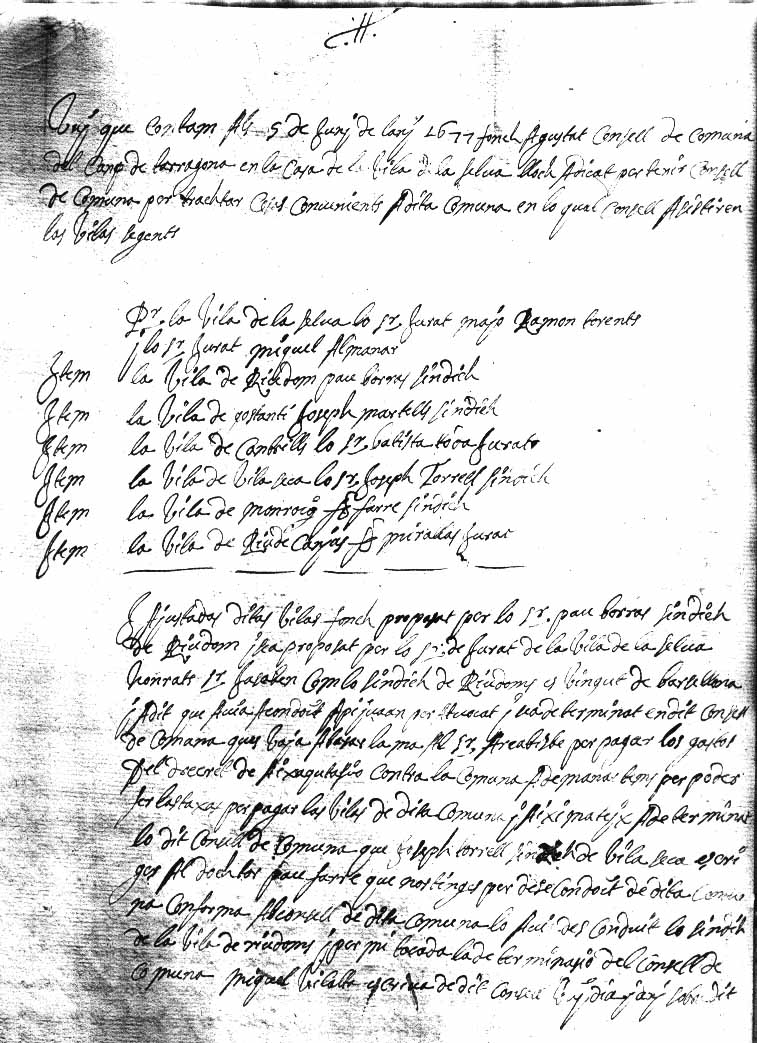 .H.
Vuy que contam Als 5 de Juny de lany 1677 fonch Agustat Consell de Comuna
del Camp de tarragona en la Casa de la Vila de la selva lloch Adicat per tenir Consell
de Comuna per trachtar Coses Convenients A dita Comuna en lo qual Consell Asistiren
las Vilas segents
Pr. la Vila de la selva lo sr. Jurat majo Ramon torents
j lo sr. Jurat miquel Almanar
Item la Vila de Riudom pau borras sindich
Item la Vila de costanti Joseph martells sindich
Item la Vila de Cambrills lo sr. batista Jurat
Item la Vila de Vila seca lo sr. Joseph Torrell sindich
Item la Vila de monroig farre sindich
Item la Vila de Riude Canyas miradas Jurat
I Ajustadas ditas Vilas fonch proposat per lo sr. pau borras sindich
de Riudom j sea proposat per lo sr. de Jurat de la Vila de la selva
honrats sr. Ja saben Com lo sindich de Riudoms es Vingut de barsellona
j A dit que Avia Acondoit per Avocat j sa determinat en dit Consell
de Comuna ques Vaja A la ma Al sr. per pagar los gastos
del decret de Contra la Comuna A demanar tems per poder
fer las taxas per pagar las Vilas de dita Comuna j Aixi mateix A determinat
lo dit Consell de Comuna que Joseph torrell sindich de Vila seca escri
ges Al dochtor pau farre que nos tinges per Condoit de dita Comu
na Conforma Al consell de dita Comuna lo Avi des Conduit lo sindich
de la Vila de riudoms j per mi tocada la determinasio del Consell de
Comuna miquel Vilalta escriva de dit Consell dia j any sobre dit